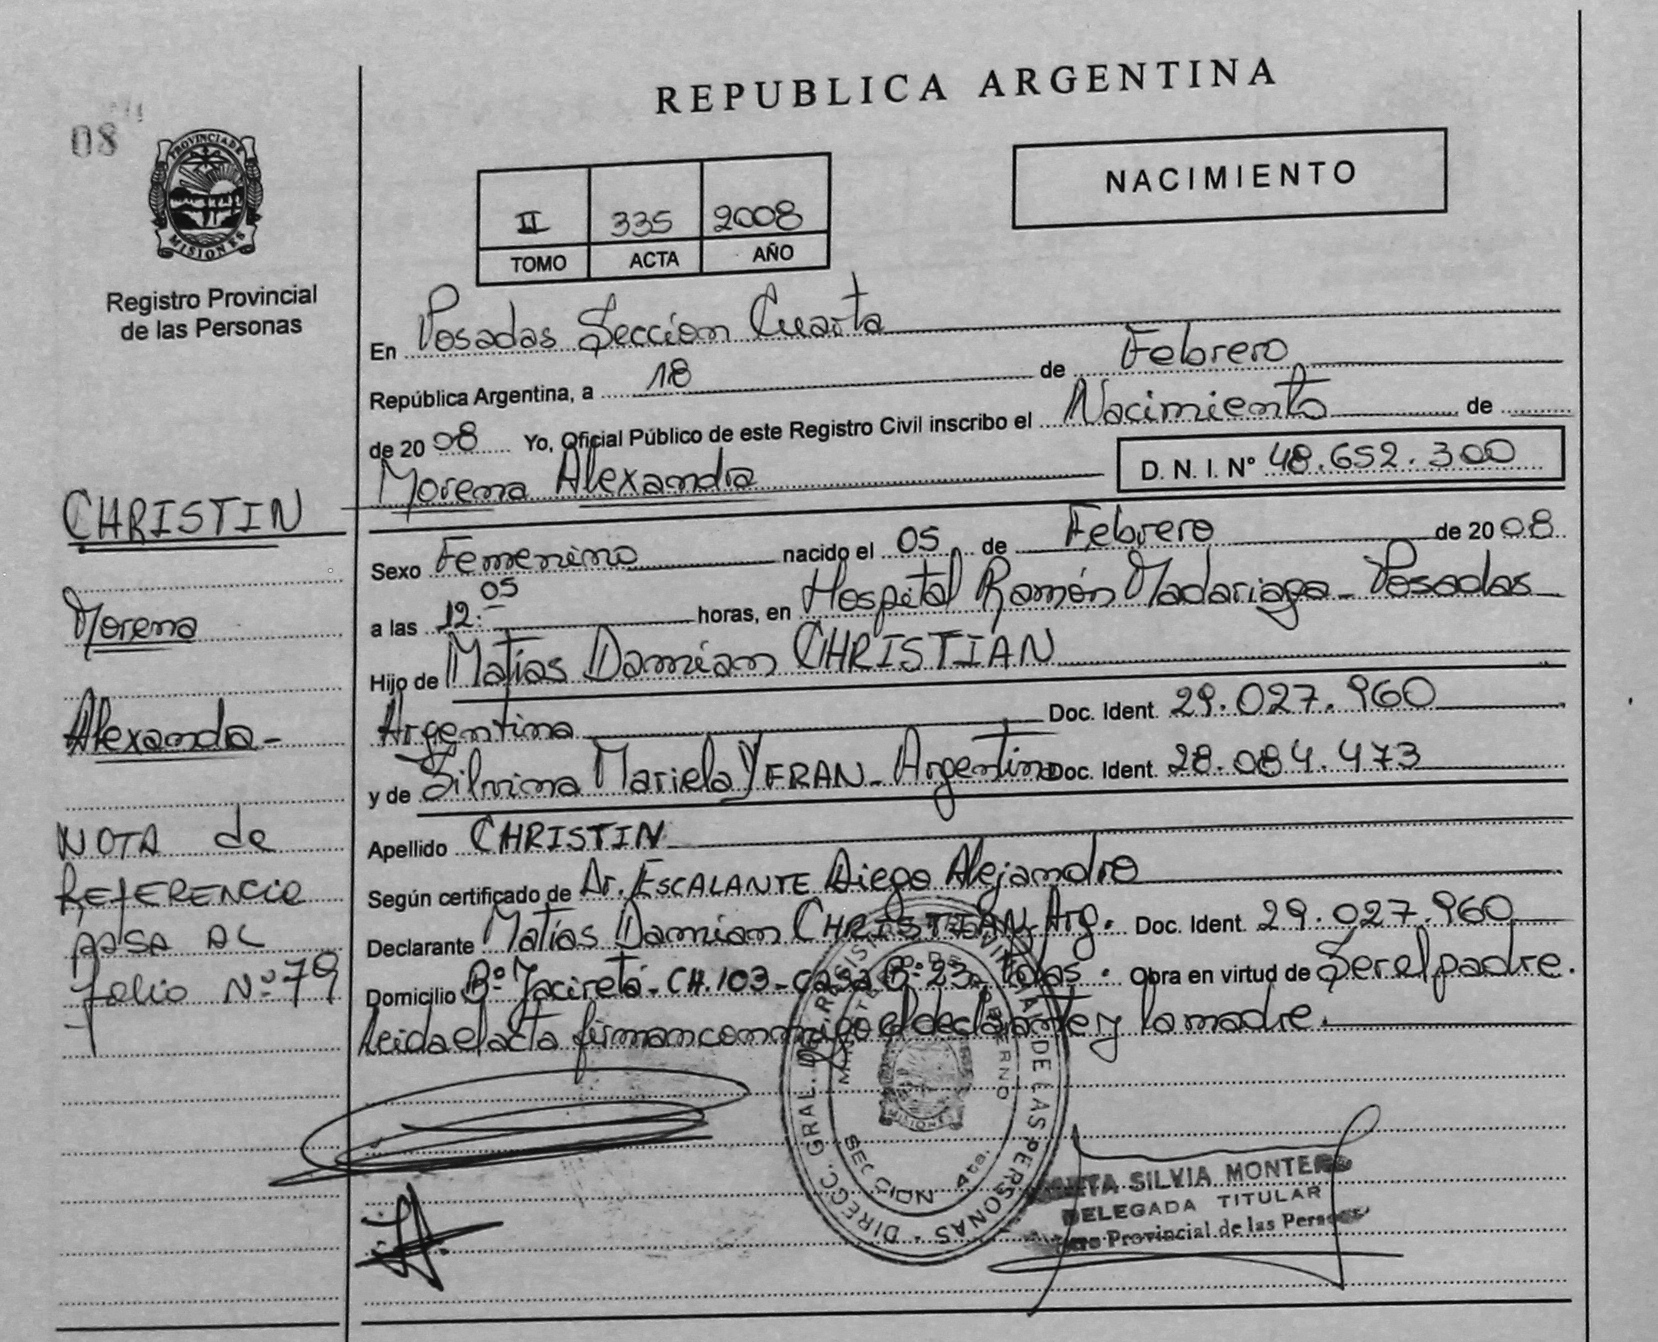 REPUBLICA ARGENTINA
08
PROVINCIA DE MISIONES
Registro Provincial
de las Personas
NACIMIENTO
II 335 2008
TOMO ACTA AÑO
En Posadas Sección Cuarta
República Argentina, a 18 de Febrero
de 2008 Yo, Oficial Público de este Registro Civil inscribo el Nacimiento de
Morena Alexandra D. N. I. Nº 48.652.300
Sexo Femenino nacido el 05 de Febrero de 2008
a las 12:05 horas, en Hospital Ramón Madariaga - Posadas
Hijo de Matías Damián CHRISTIAN
Argentina Doc. Ident. 29.027.960
y de Silvina Mariela YFRAN - Argentina Doc. Ident. 28.084.473
Apellido CHRISTIN
Según certificado de Dr. ESCALANTE Diego Alejandro
Declarante Matías Damian CHRISTIAN Arg. Doc. Ident. 29.027.960
Domicilio Bº Yaciretá - CH.103 - casa Nº 23 - Pdas. Obra en virtud de Ser el padre.
Leida el acta firman conmigo el declarante y la madre.
CHRISTIN
Morena
Alexandra -
NOTA de
REFERENCIA
PASA AL
folio Nº 79
DIRECC. GRAL. DE LAS PERSONAS
SECCION 4ta.
MISIONES
SILVIA MONTERO
DELEGADA TITULAR
Provincial de las Personas